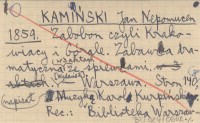 KAMIŃSKI Jan Nepomucen
1859. Zabobon czyli Krako-
wiacy i Górale. Zabawka dra-
matyczna ze śpiewkami.
Warszawa. Stron 148
napisał Muzyka Karola Kurpińskiego
Rec.: Biblioteka Warszaw-